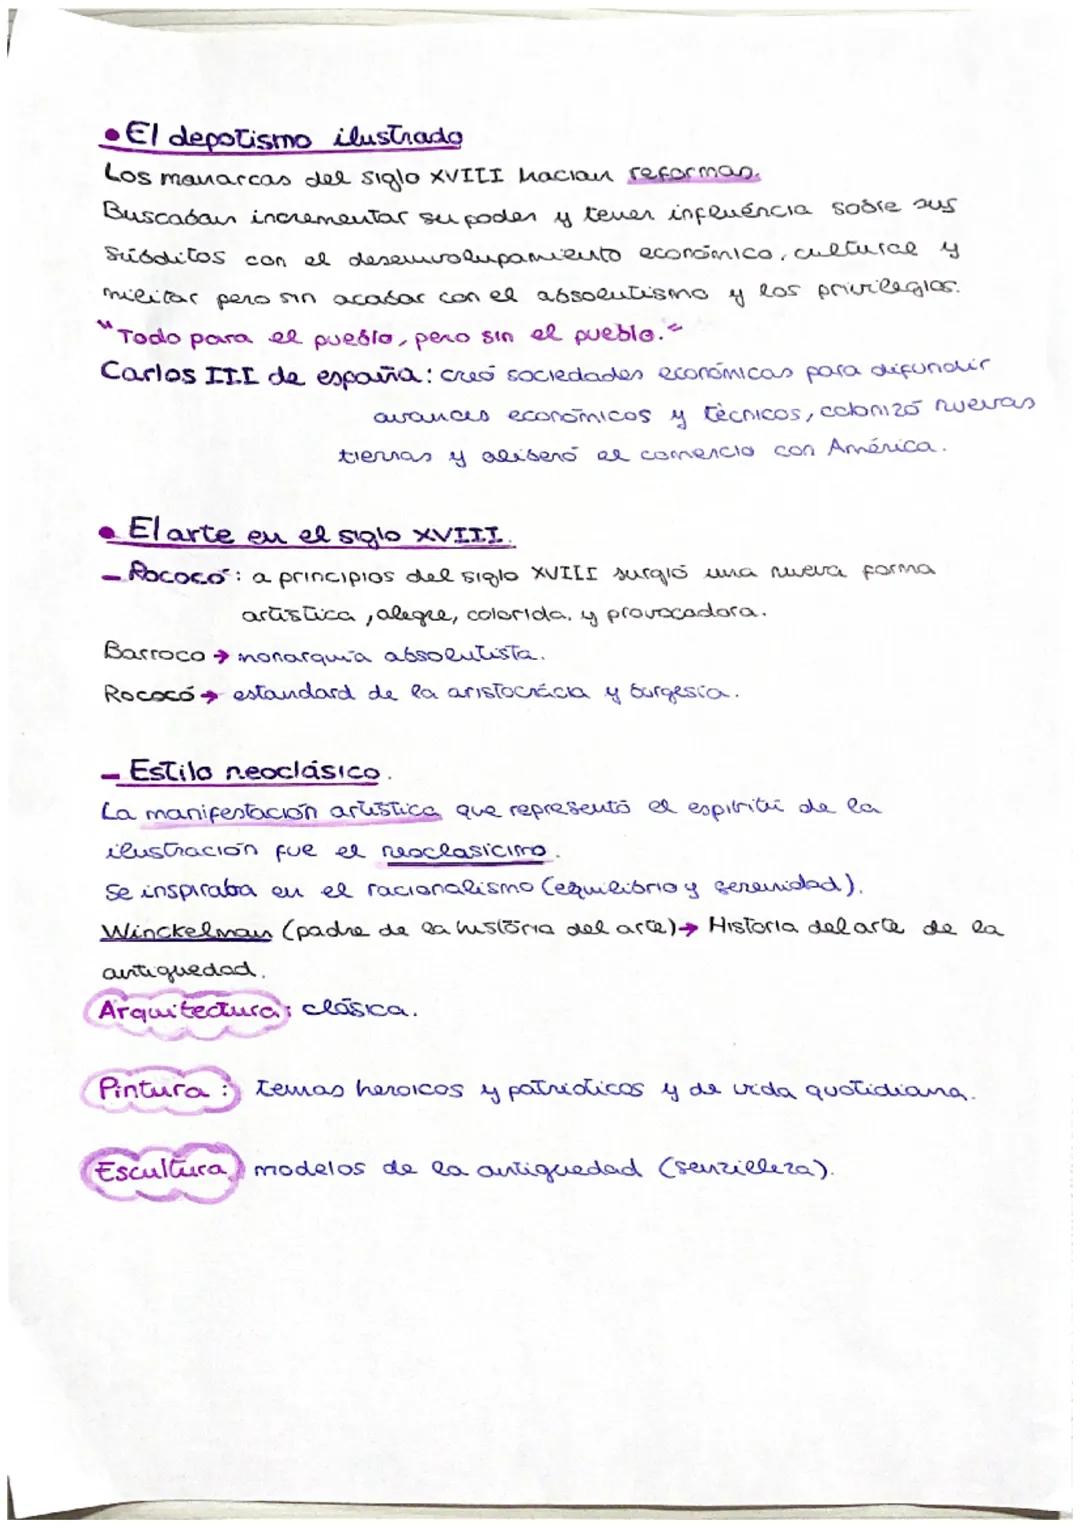 • El depotismo ilustrado
Los monarcas del siglo XVIII hacian reformas.
Buscaban incrementar su poder y tener influéncia sobre sus
súbditos con el desenvolupamiento económico, cultural y
militar pero sin acabar con el absolutismo y los privilegios.
"Todo para el pueblo, pero sin el pueblo."
Carlos III de españa: creó sociedades económicas para difundir
avances económicos y tècnicos, colonizó nuevas
tierras y aliberó el comercio con América.
• El arte en el siglo XVIII.
- Rococó: a principios del siglo XVIII surgió una nueva forma
artística, alegre, colorida, y provocadora.
Barroco → monarquía absolutista.
Rococó → estandard de la aristocrácia y burgesía.
- Estilo neoclásico.
La manifestación artística que representó el espíritu de la
ilustración fue el neoclasicimo.
Se inspiraba en el racionalismo (equilibrio y serenidad).
Winckelman (padre de la história del arte) → Historia del arte de la
antiguedad.
Arquitectura: clásica.
Pintura: temas heroicos y patrioticos y de vida quotidiana.
Escultura modelos de la antiguedad (senzilleza).